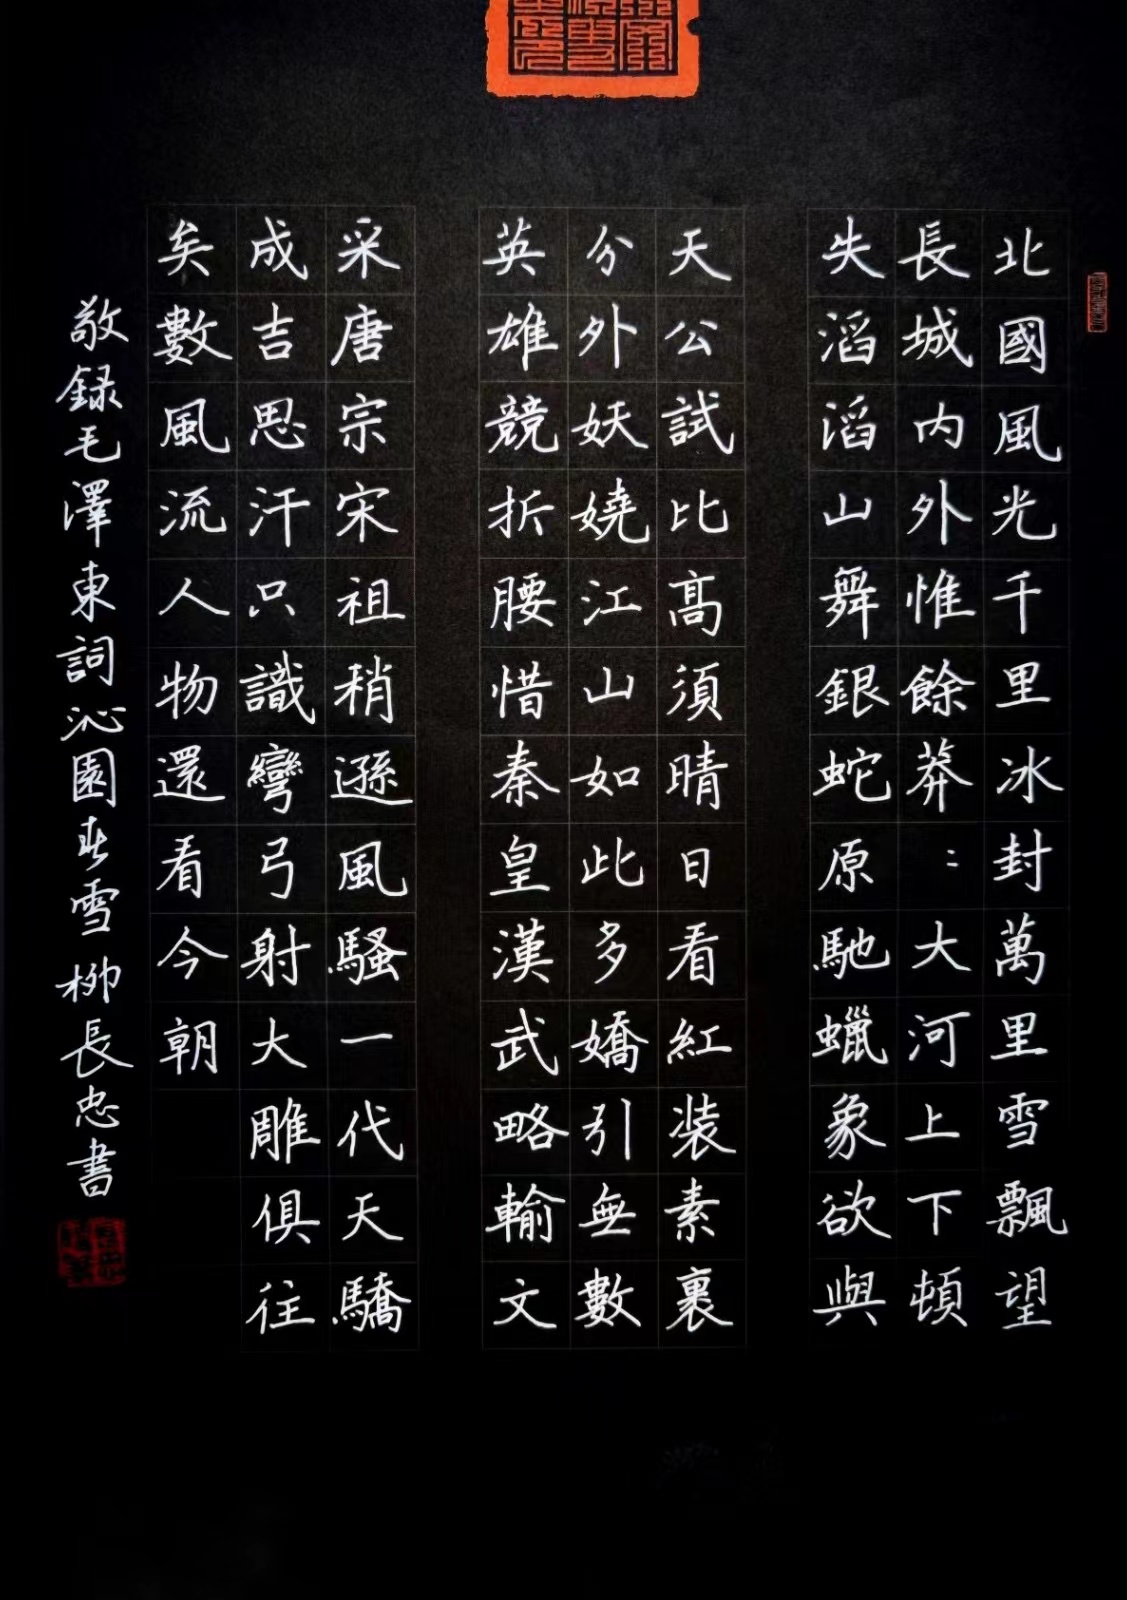 北國風光千里冰封萬里雪飄望
長城內外惟餘莽：大河上下頓
失滔滔山舞銀蛇原馳蠟象欲與
天公試比高須晴日看紅装素裹
分外妖嬈江山如此多嬌引無數
英雄競折腰惜秦皇漢武略輸文
采唐宗宋祖稍遜風騷一代天驕
成吉思汗只識彎弓射大雕俱往
矣數風流人物還看今朝
敬録毛澤東詞沁園春雪 柳長忠書